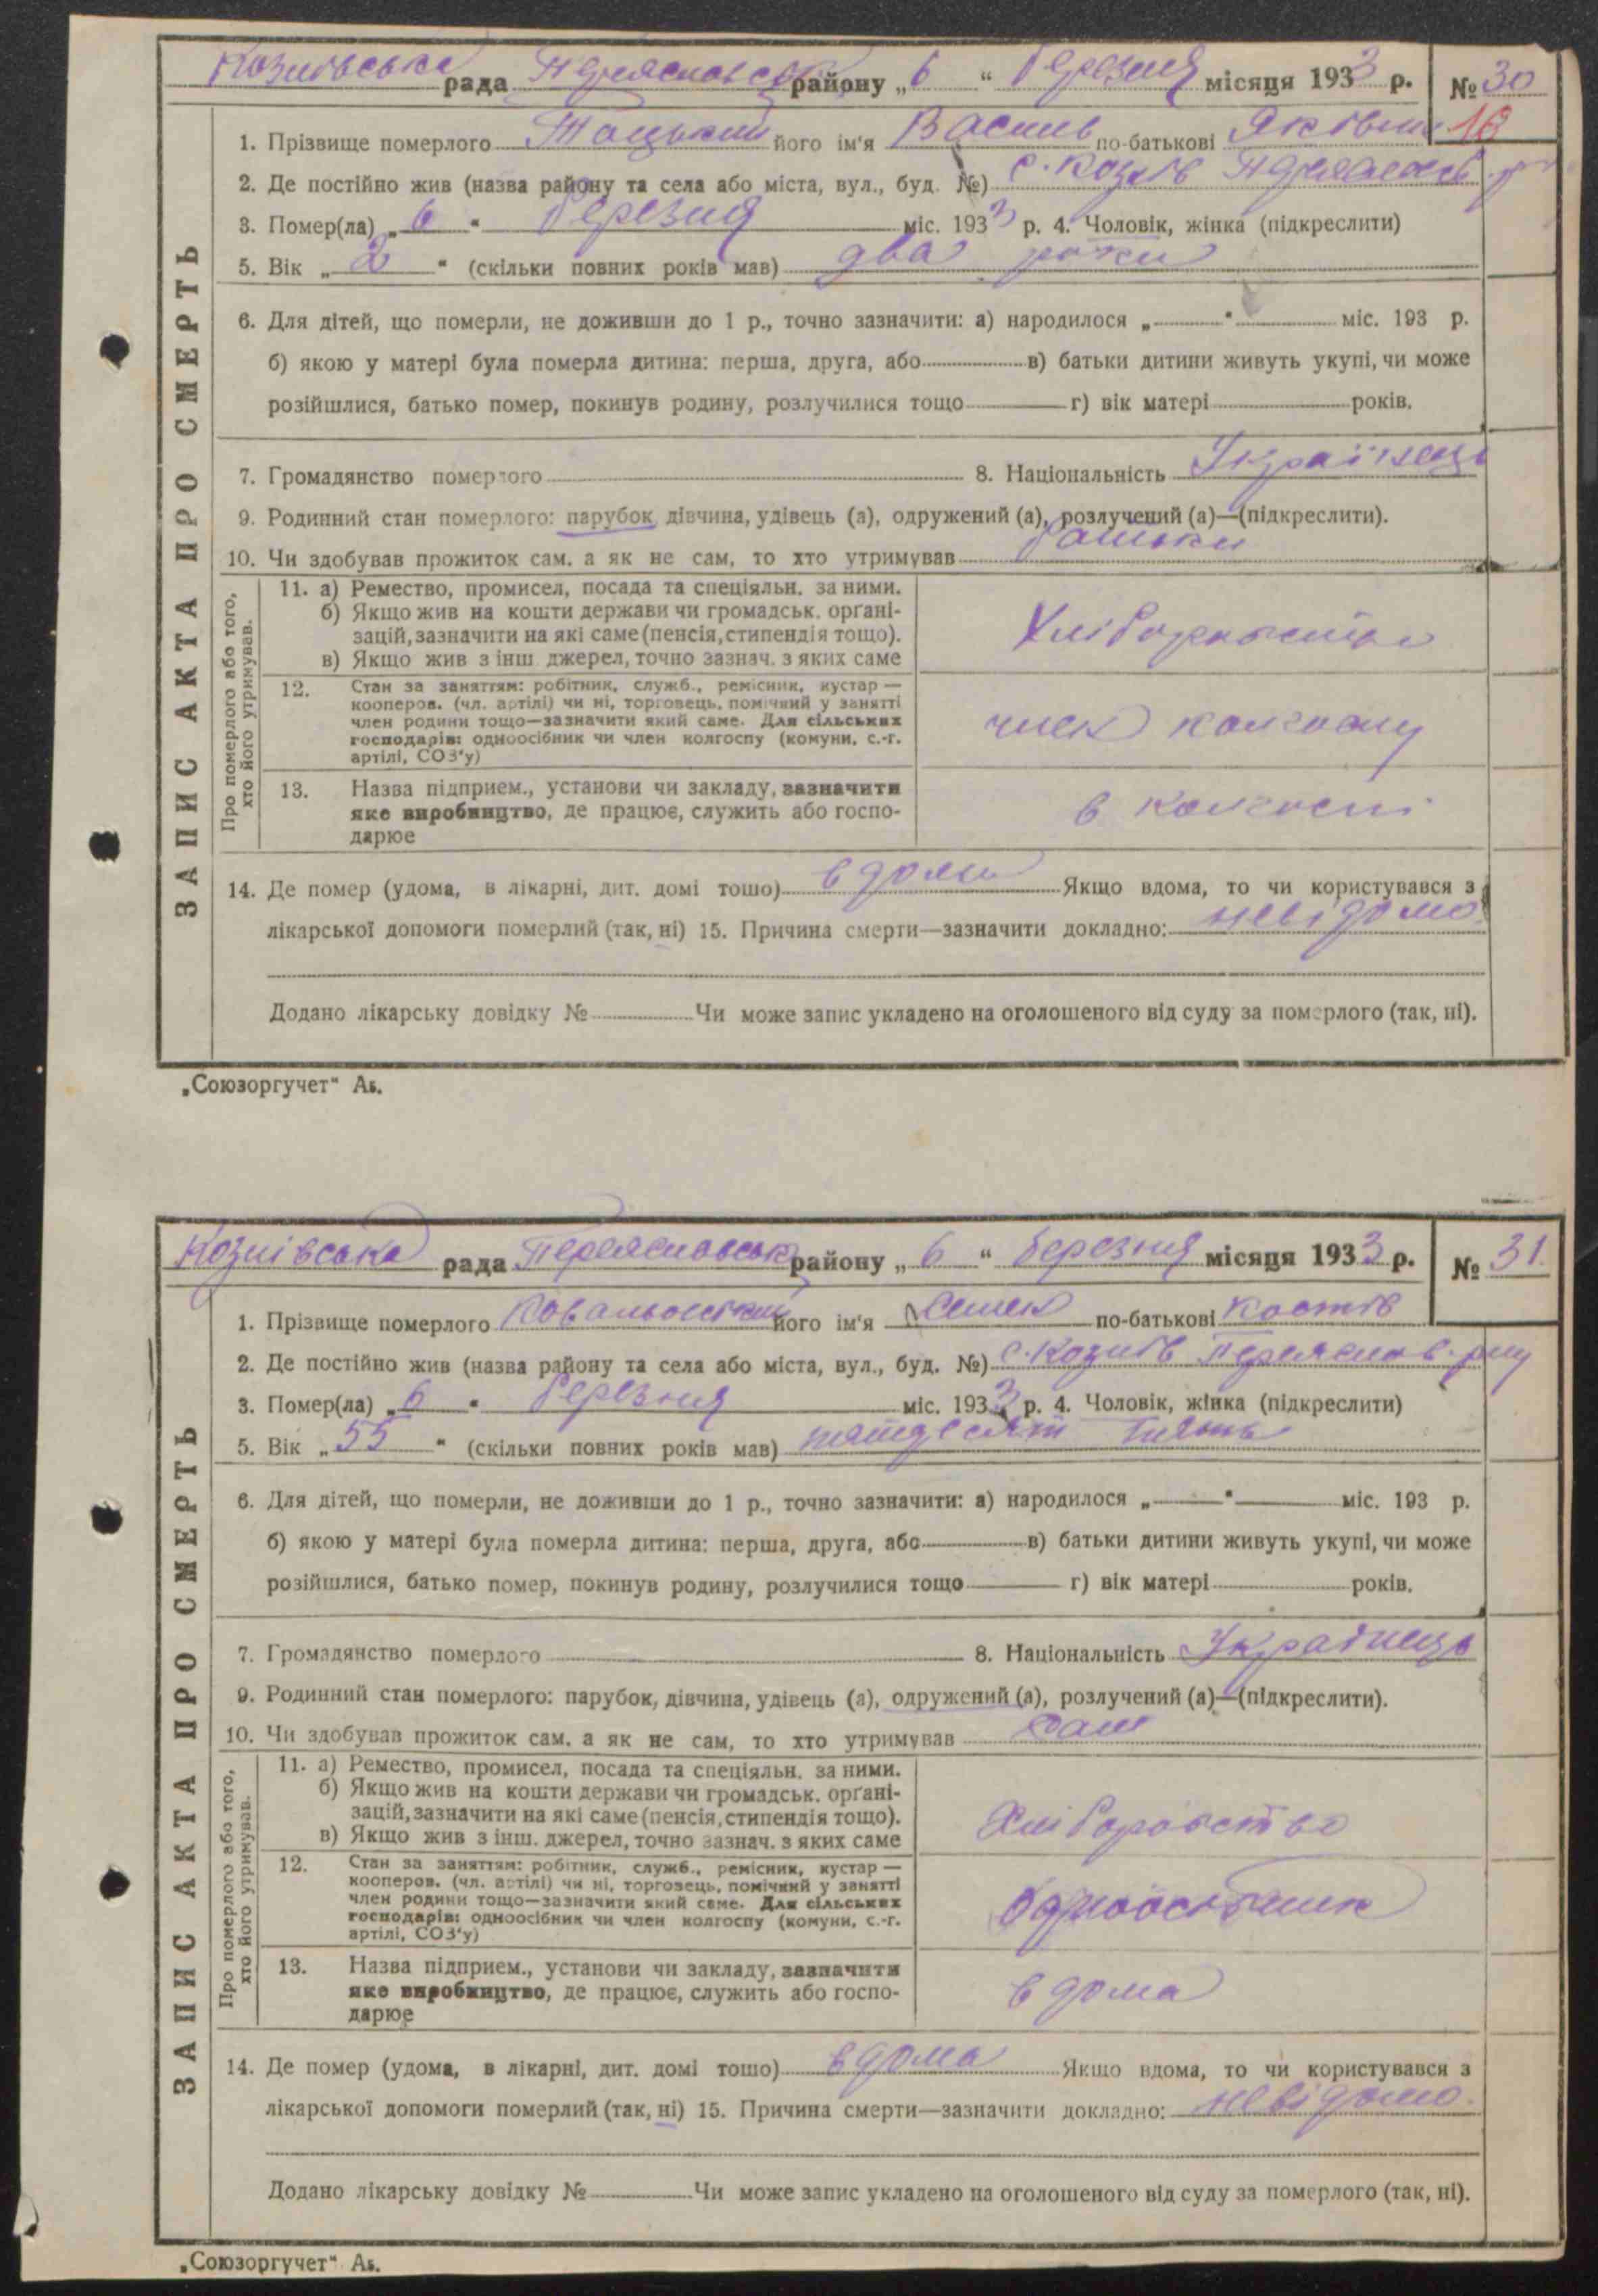 Козлівська рада Переяславськ району „ 6 “ березня місяця 1933 р. № 30
1. Прізвище померлого його ім'я Василь по-батькові Якович 16
2. Де постійно жив (назва району та села або міста, вул., буд. №) с. Козлів Переяслав. р
3. Помер(ла) „ 6 “ березня міс. 1933 р. 4. Чоловік, жінка (підкреслити)
5. Вік „ 2 “ (скільки повних років мав) два роки
6. Для дітей, що померли, не доживши до 1 р., точно зазначити: а) народилося „ “ міс. 193 р.
б) якою у матері була померла дитина: перша, друга, або в) батьки дитини живуть укупі, чи може
розійшлися, батько помер, покинув родину, розлучилися тощо г) вік матері років.
7. Громадянство померлого 8. Національність Українець
9. Родинний стан померлого: парубок, дівчина, удівець (а), одружений (а), розлучений (а)—(підкреслити).
10. Чи здобував прожиток сам, а як не сам, то хто утримував батьки
Про померлого або того,
хто його утримував.
11. а) Ремество, промисел, посада та спеціяльн. за ними.
б) Якщо жив на кошти держави чи громадськ. орґані-
зацій, зазначити на які саме (пенсія, стипендія тощо).
в) Якщо жив з інш. джерел, точно зазнач. з яких саме
Хліборобство
12. Стан за заняттям: робітник, служб., ремісник, кустар —
кооперов. (чл. артілі) чи ні, торговець, помічний у занятті
член родини тощо—зазначити який саме. Для сільських
господарів: одноосібник чи член колгоспу (комуни, с.-г.
артілі, СОЗ'у)
член колгоспу
13. Назва підприєм., установи чи закладу, зазначити
яке виробництво, де працює, служить або госпо-
дарює
в колгоспі
14. Де помер (удома, в лікарні, дит. домі тощо) вдома Якщо вдома, то чи користувався з
лікарської допомоги померлий (так, ні) 15. Причина смерти—зазначити докладно: невідомо
Додано лікарську довідку № Чи може запис укладено на оголошеного від суду за померлого (так, ні).
ЗАПИС АКТА ПРО СМЕРТЬ
„Союзоргучет“ Аб.
Козлівська рада Переяславськ району „ 6 “ березня місяця 1933 р. № 31
1. Прізвище померлого його ім'я Семен по-батькові Костів
2. Де постійно жив (назва району та села або міста, вул., буд. №) с. Козлів Переяслав. р-ну
3. Помер(ла) „ 6 “ березня міс. 1933 р. 4. Чоловік, жінка (підкреслити)
5. Вік „ 55 “ (скільки повних років мав) пятдесят пять
6. Для дітей, що померли, не доживши до 1 р., точно зазначити: а) народилося „ “ міс. 193 р.
б) якою у матері була померла дитина: перша, друга, або в) батьки дитини живуть укупі, чи може
розійшлися, батько помер, покинув родину, розлучилися тощо г) вік матері років.
7. Громадянство померлого 8. Національність Українець
9. Родинний стан померлого: парубок, дівчина, удівець (а), одружений (а), розлучений (а)—(підкреслити).
10. Чи здобував прожиток сам, а як не сам, то хто утримував сам
Про померлого або того,
хто його утримував.
11. а) Ремество, промисел, посада та спеціяльн. за ними.
б) Якщо жив на кошти держави чи громадськ. орґані-
зацій, зазначити на які саме (пенсія, стипендія тощо).
в) Якщо жив з інш. джерел, точно зазнач. з яких саме
Хліборобство
12. Стан за заняттям: робітник, служб., ремісник, кустар —
кооперов. (чл. артілі) чи ні, торговець, помічний у занятті
член родини тощо—зазначити який саме. Для сільських
господарів: одноосібник чи член колгоспу (комуни, с.-г.
артілі, СОЗ'у)
Одноосібник
13. Назва підприєм., установи чи закладу, зазначити
яке виробництво, де працює, служить або госпо-
дарює
вдома
14. Де помер (удома, в лікарні, дит. домі тощо) вдома Якщо вдома, то чи користувався з
лікарської допомоги померлий (так, ні) 15. Причина смерти—зазначити докладно: невідомо.
Додано лікарську довідку № Чи може запис укладено на оголошеного від суду за померлого (так, ні).
ЗАПИС АКТА ПРО СМЕРТЬ
„Союзоргучет“ Аб.